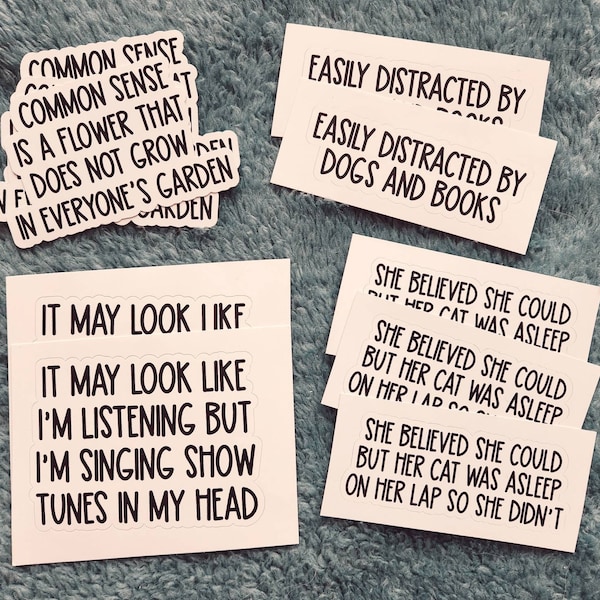 COMMON SENSE
COMMON SENSE
IS A FLOWER THAT
DOES NOT GROW
IN EVERYONE'S GARDEN
GARDEN
EASILY DISTRACTED BY
BOOKS
EASILY DISTRACTED BY
DOGS AND BOOKS
IT MAY LOOK LIKE
IT MAY LOOK LIKE
I'M LISTENING BUT
I'M SINGING SHOW
TUNES IN MY HEAD
SHE BELIEVED SHE COULD
BUT HER CAT WAS ASLEEP
SHE BELIEVED SHE COULD
BUT HER CAT WAS ASLEEP
ON HER LAP SO
SHE BELIEVED SHE COULD
BUT HER CAT WAS ASLEEP
ON HER LAP SO SHE DIDN'T